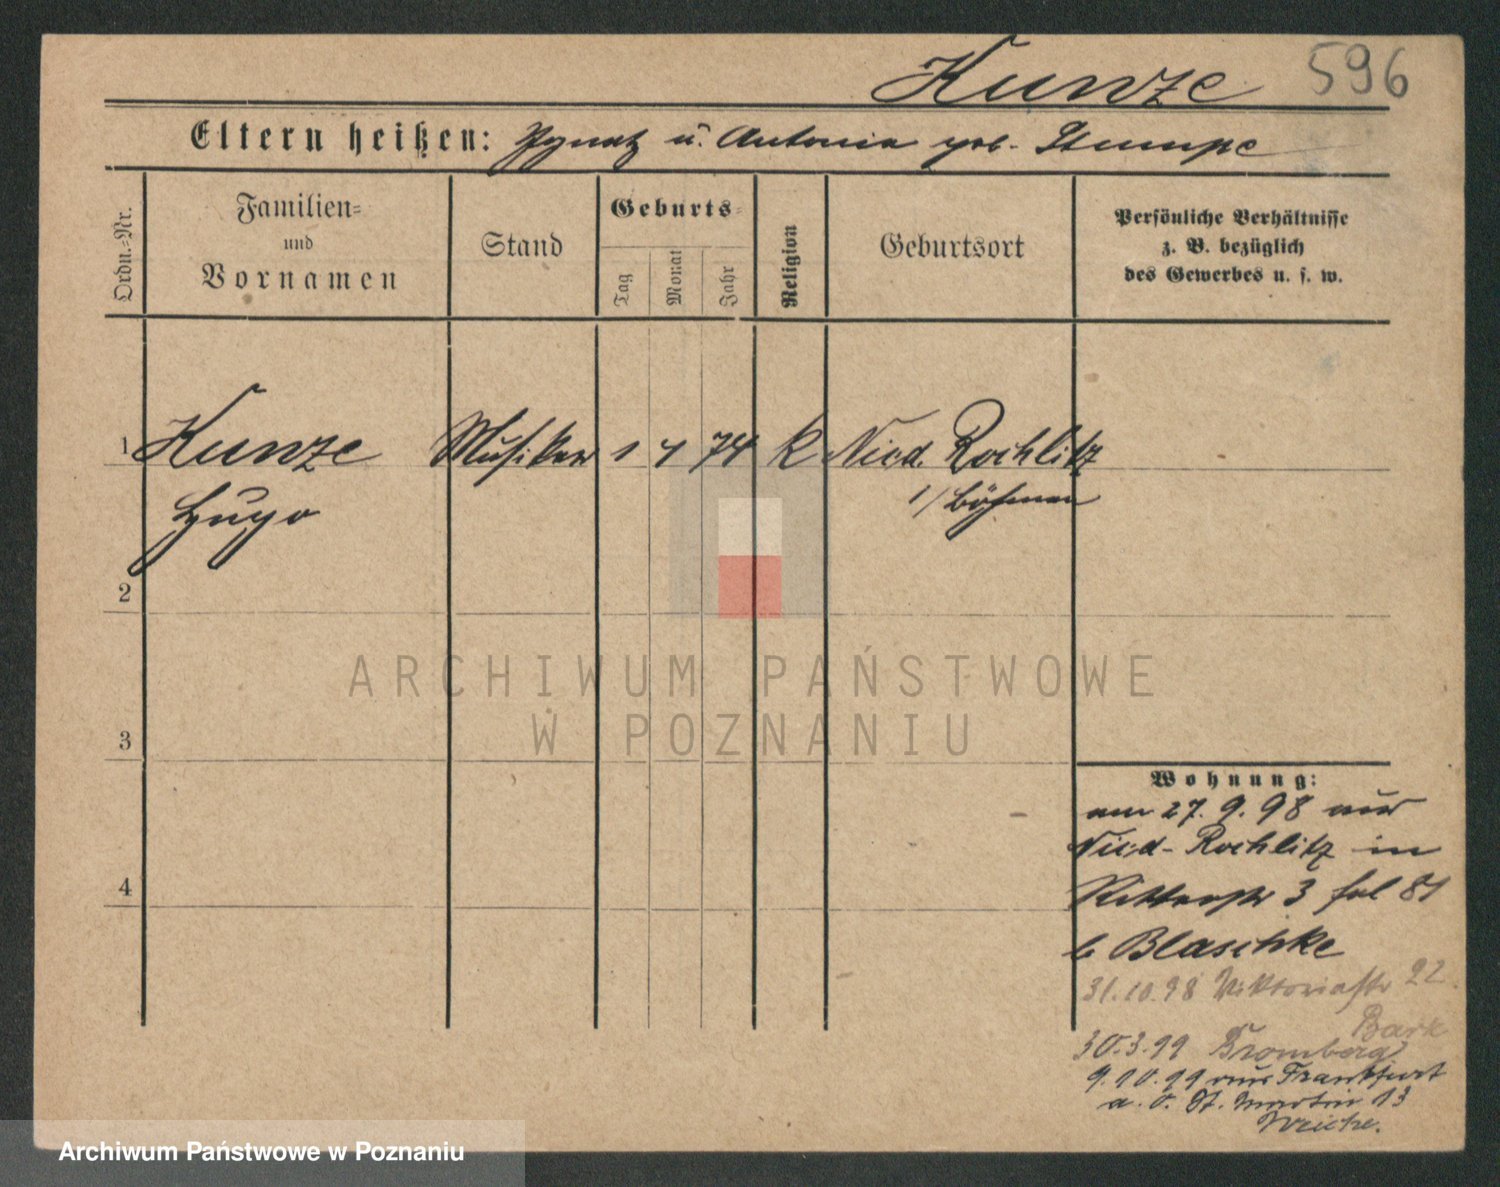 Kunze 596
Eltern heißen: Ignatz u. Antonia geb. Stumpe
Ordn.=Nr.
Familien=
und
Vornamen
Stand
Geburts=
Tag
Monat
Jahr
Religion
Geburtsort
Persönliche Verhältnisse
z. B. bezüglich
des Gewerbes u. s. w.
1 Kunze Musiker 1 4 74 K Nied. Rochlitz
Hugo
i/ Böhmen
2
3
4
Wohnung:
am 27. 9. 98 aus
Nied- Rochlitz in
Ritterstr 3 fol 81
b Blaschke
31.10.98 Viktoriastr 22
Bark
30.3.99 Bromberg
9.10.99 aus Frankfurt
a. O. St. Martin 13
ARCHIWUM PAŃSTWOWE
W POZNANIU
Archiwum Państwowe w Poznaniu